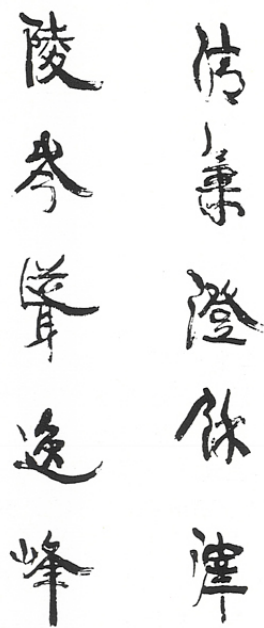 清氣澄餘滓
陵岑聳逸峰